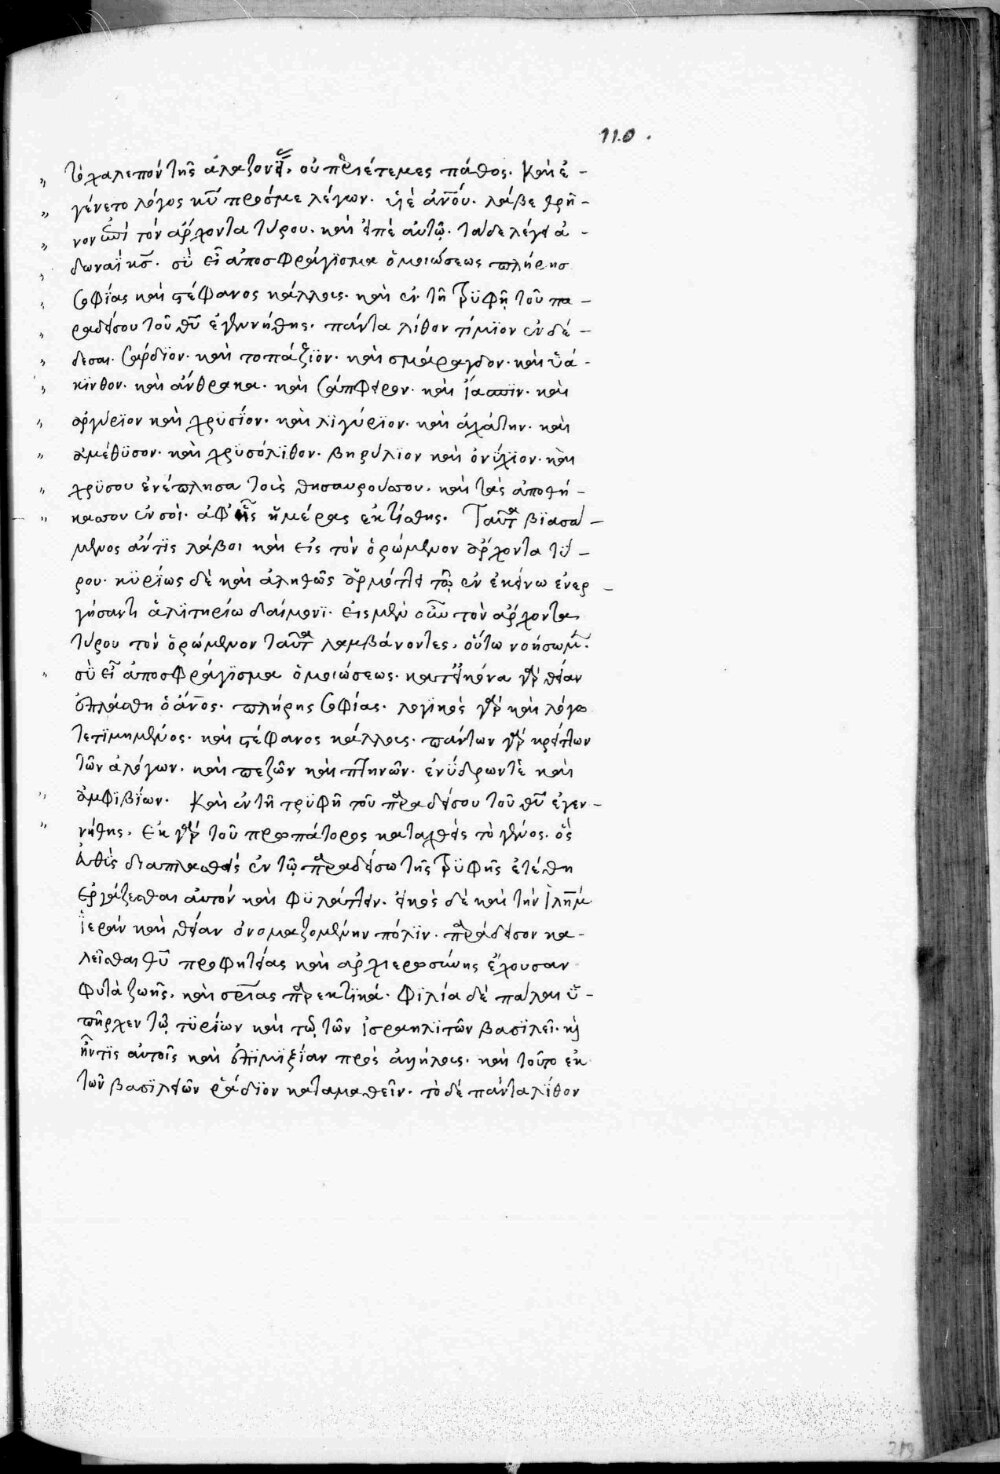 110.
τὸ χαλεπὸν τῆς ἀλαζονείας οὐ περιέτεμες πάθος. Καὶ ἐ-
γένετο λόγος κυ̅ πρός με λέγων. υἱὲ ἀνο̅υ. λάβε θρῆ-
νον ἐπὶ τὸν ἄρχοντα τύρου. καὶ εἰπὲ αὐτῷ. τάδε λέγει ἀ-
δωναῒ κς̅. σὺ εἶ ἀποσφράγϊσμα ὁμοιώσεως πλήρης
σοφίας καὶ στέφανος κάλλους. καὶ ἐν τῇ τρϋφῇ τοῦ πα-
ραδείσου τοῦ θυ̅ ἐγεννήθης. πάντα λίθον τίμϊον ἐνδέ-
δεσαι. σάρδϊον. καὶ τοπάζϊον. καὶ σμάραγδον. καὶ ὑά-
κϊνθον. καὶ ἄνθρακα. καὶ σάπφειρον. καὶ ἴασπϊν. καὶ
ἀργύρϊον καὶ χρϋσίον. καὶ λϊγύρϊον. καὶ ἀχάτην. καὶ
ἀμέθϋσον. καὶ χρϋσόλϊθον. βηρύλιον καὶ ὀνύχϊον. καὶ
χρϋσου ἐνέπλησα τοὺς θησαυρούς σου. καὶ τὰς ἀποθή-
κας σου ἐν σοὶ. ἀφ' ἧς ἡμέρας ἐκτίσθης. Ταῦτα βϊασά-
μενος ἄν τϊς λάβοι καὶ εἰς τὸν ὁρώμενον ἄρχοντα τύ-
ρου. κϋρίως δὲ καὶ ἀληθῶς ἁρμόττει τῷ ἐν ἐκείνω ἐνερ-
γήσαντι ἀλϊτηρίω δαίμονϊ. εἰς μὲν οὖν τὸν ἄρχοντα
τύρου τὸν ὁρώμενον ταῦτα λαμβάνοντες, οὕτω νοήσωμεν.
σὺ εἶ ἀποσφράγϊσμα ὁμοιώσεως. κατ' εἰκόνα γὰρ θείαν
ἐπλάσθη ὁ ἄνο̅ς. πλήρης σοφίας. λογϊκὸς γὰρ καὶ λόγω
τετϊμημένος. καὶ στέφανος κάλλους. πάντων γὰρ κρείττων
τῶν ἀλόγων. καὶ πεζῶν καὶ πτηνῶν. ἐνύδρων τὲ καὶ
ἀμφϊβίων. Καὶ ἐν τῇ τρϋφῇ τοῦ παραδείσου τοῦ θυ̅ ἐγεν-
νήθης. ἐκ γὰρ τοῦ προπάτορος καταχθεὶς τὸ γένος. ὃς
εὐθὺς διαπλασθεὶς ἐν τῷ παραδείσω τῆς τρϋφῆς ἐτέθη
ἐργάζεσθαι αὐτὸν καὶ φϋλάττειν. εἰκὸς δὲ καὶ τὴν ἱλη̅μ
ἱερὰν καὶ θείαν ὀνομαζομένην πόλϊν. παράδεισον κα-
λεῖσθαι θυ̅ προφητείας καὶ ἀρχιεροσύνης ἔχουσαν
φυτὰ ζωῆς, καὶ σρι̅ας παρεκτϊκά. φϊλία δὲ πάλαι ὑ-
πῆρχεν τῷ τϋρίων καὶ τῷ τῶν ἰσραηλϊτῶν βασϊλεῖ. καὶ
ἦν τϊς αὐτοῖς καὶ ἐπϊμϊξία πρὸς ἀλλήλους. καὶ τοῦτο ἐκ
τῶν βασϊλειῶν ῥάδϊον καταμαθεῖν. τὸ δὲ πάντα λίθον
219